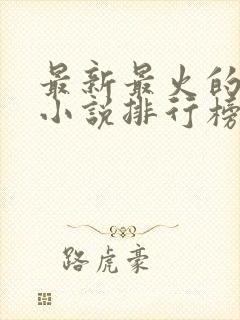 最新最火的
小说排行榜
路虎豪